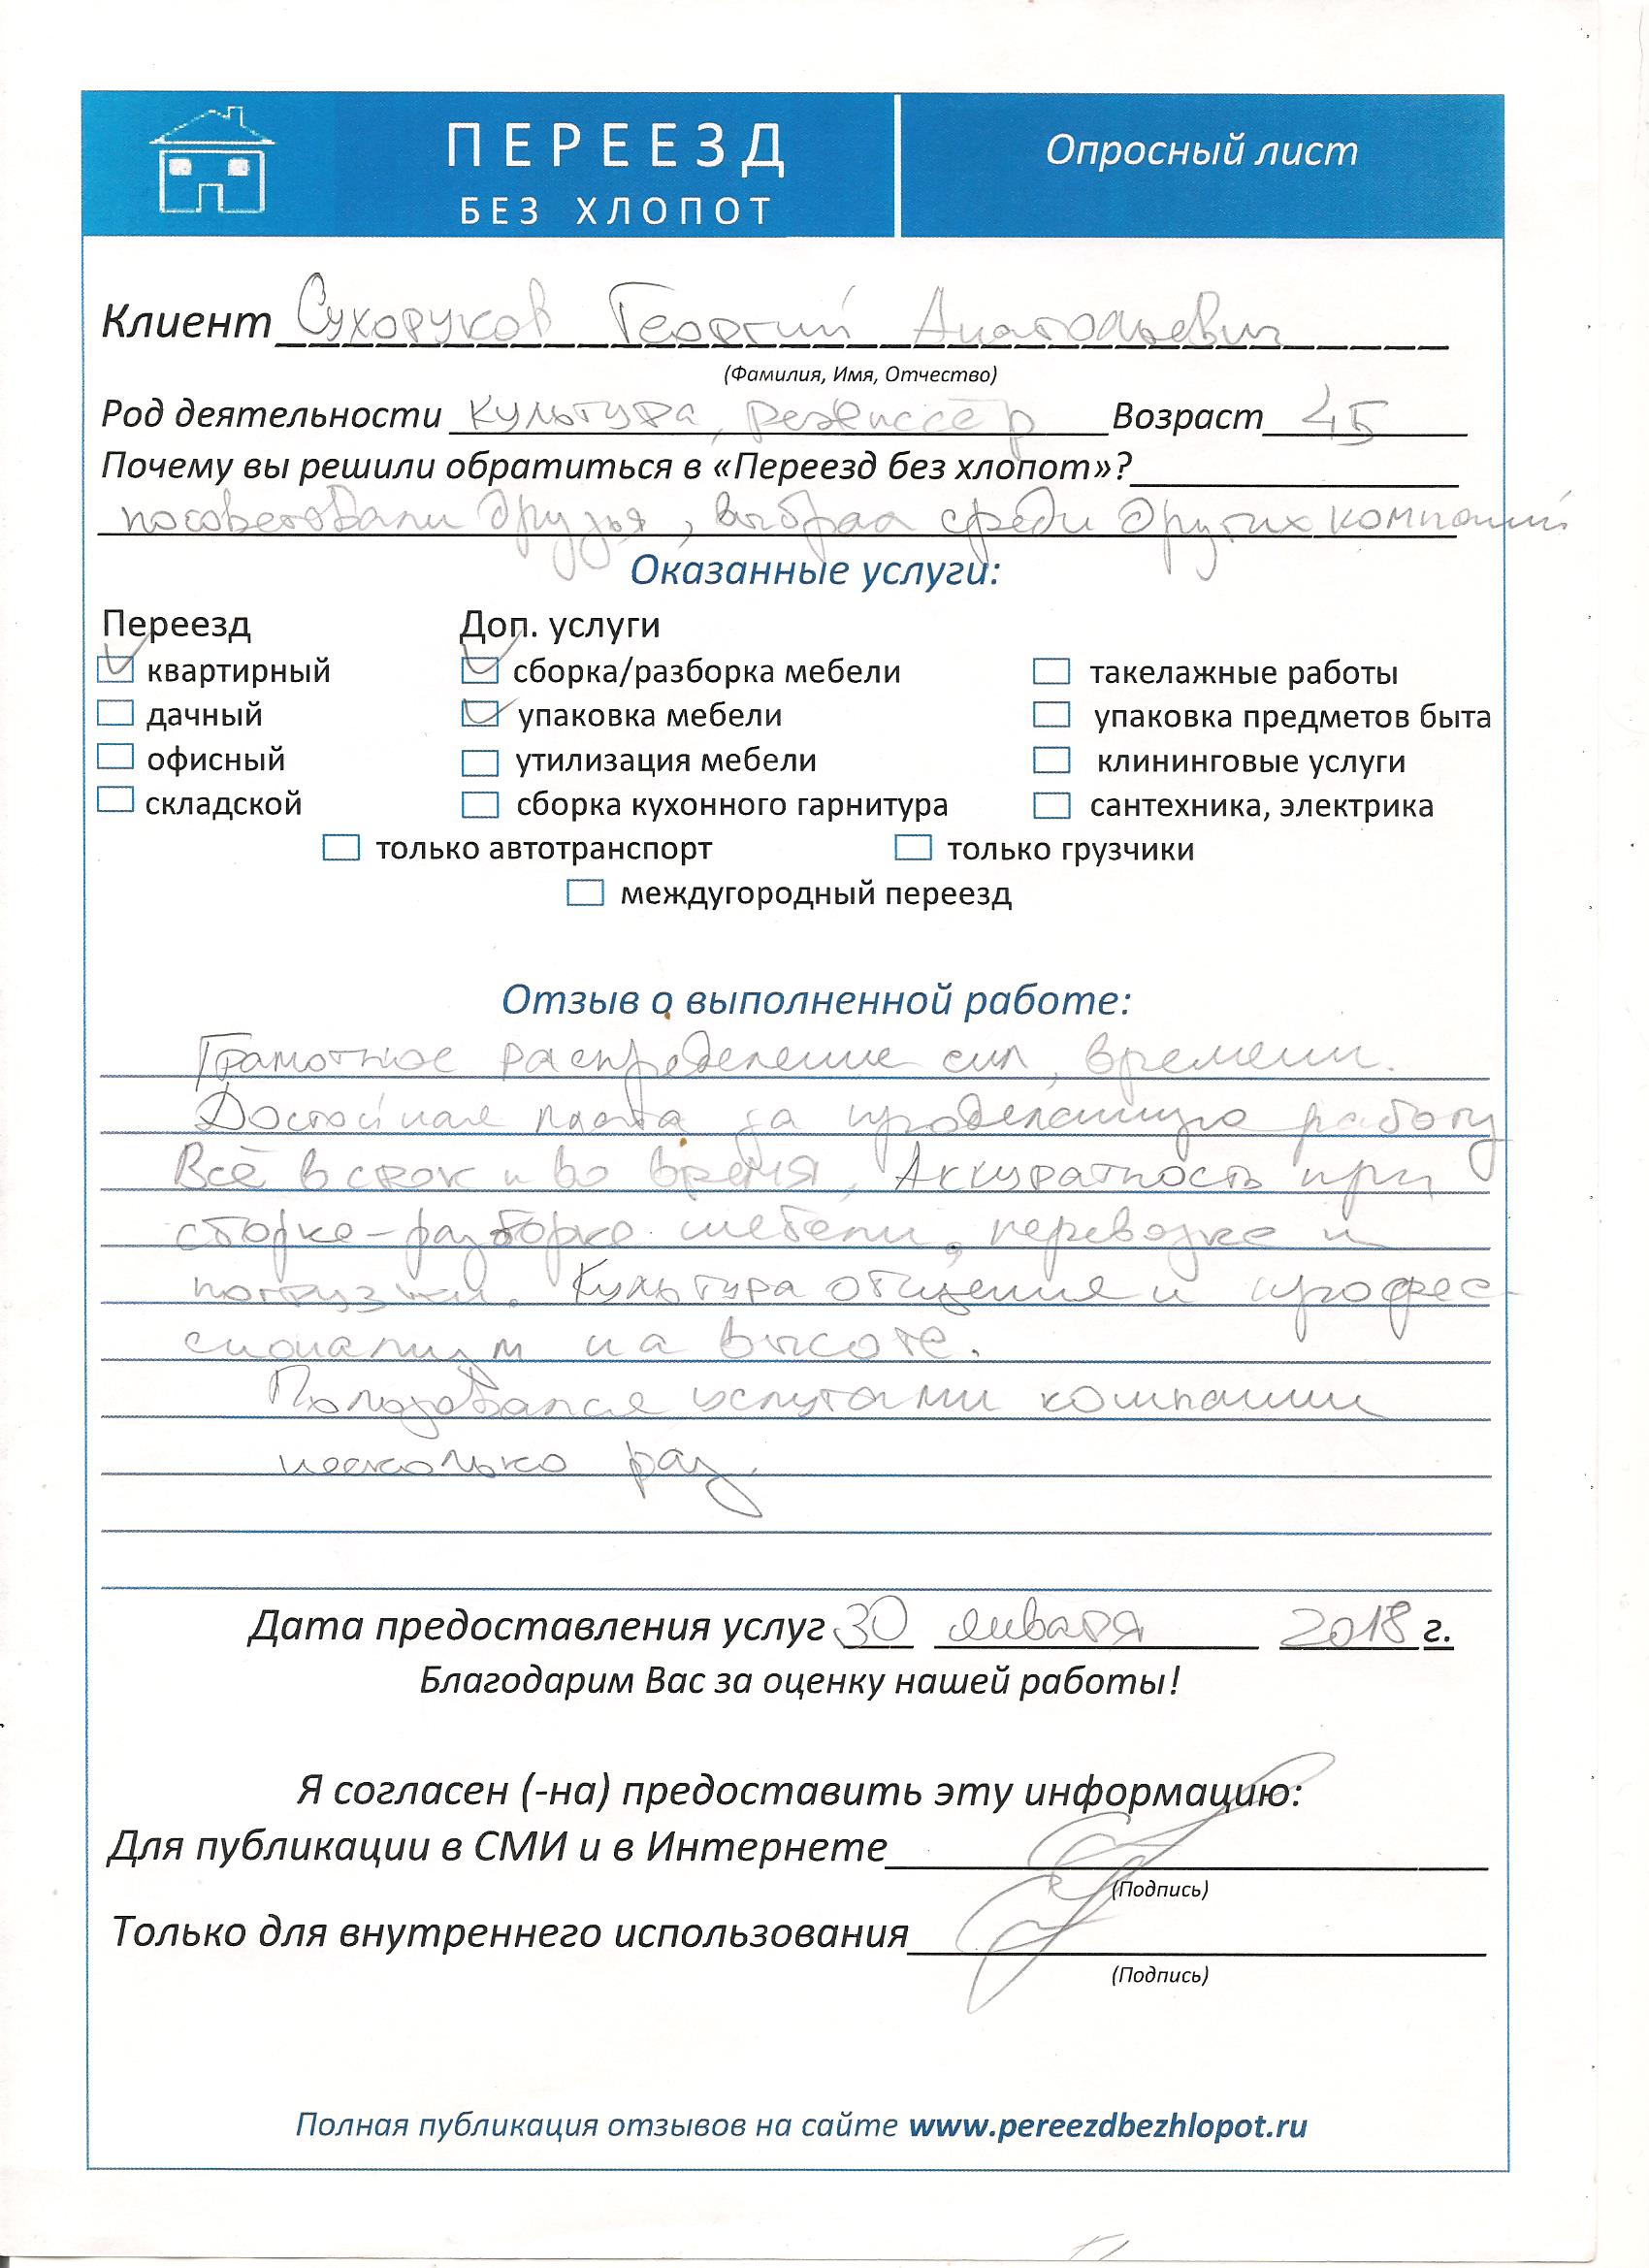 ПЕРЕЕЗД
БЕЗ ХЛОПОТ
Опросный лист
Клиент Сухоруков Георгий Анатольевич
(Фамилия, Имя, Отчество)
Род деятельности культура, режиссёр Возраст 45
Почему вы решили обратиться в «Переезд без хлопот»?
посоветовали друзья, выбрал среди других компаний
Оказанные услуги:
Переезд Доп. услуги
квартирный сборка/разборка мебели такелажные работы
дачный упаковка мебели упаковка предметов быта
офисный утилизация мебели клининговые услуги
складской сборка кухонного гарнитура сантехника, электрика
только автотранспорт только грузчики
междугородный переезд
Отзыв о выполненной работе:
Грамотное распределение сил, времени.
Достойная плата за проделанную работу
Всё в срок и во время, Аккуратность при
сборке-разборке мебели, перевозке и
погрузки. Культура общения и профес-
сионализм на высоте.
Пользовался услугами компании
несколько раз.
Дата предоставления услуг 30 января 2018 г.
Благодарим Вас за оценку нашей работы!
Я согласен (-на) предоставить эту информацию:
Для публикации в СМИ и в Интернете
(Подпись)
Только для внутреннего использования
(Подпись)
Полная публикация отзывов на сайте www.pereezdbezhlopot.ru